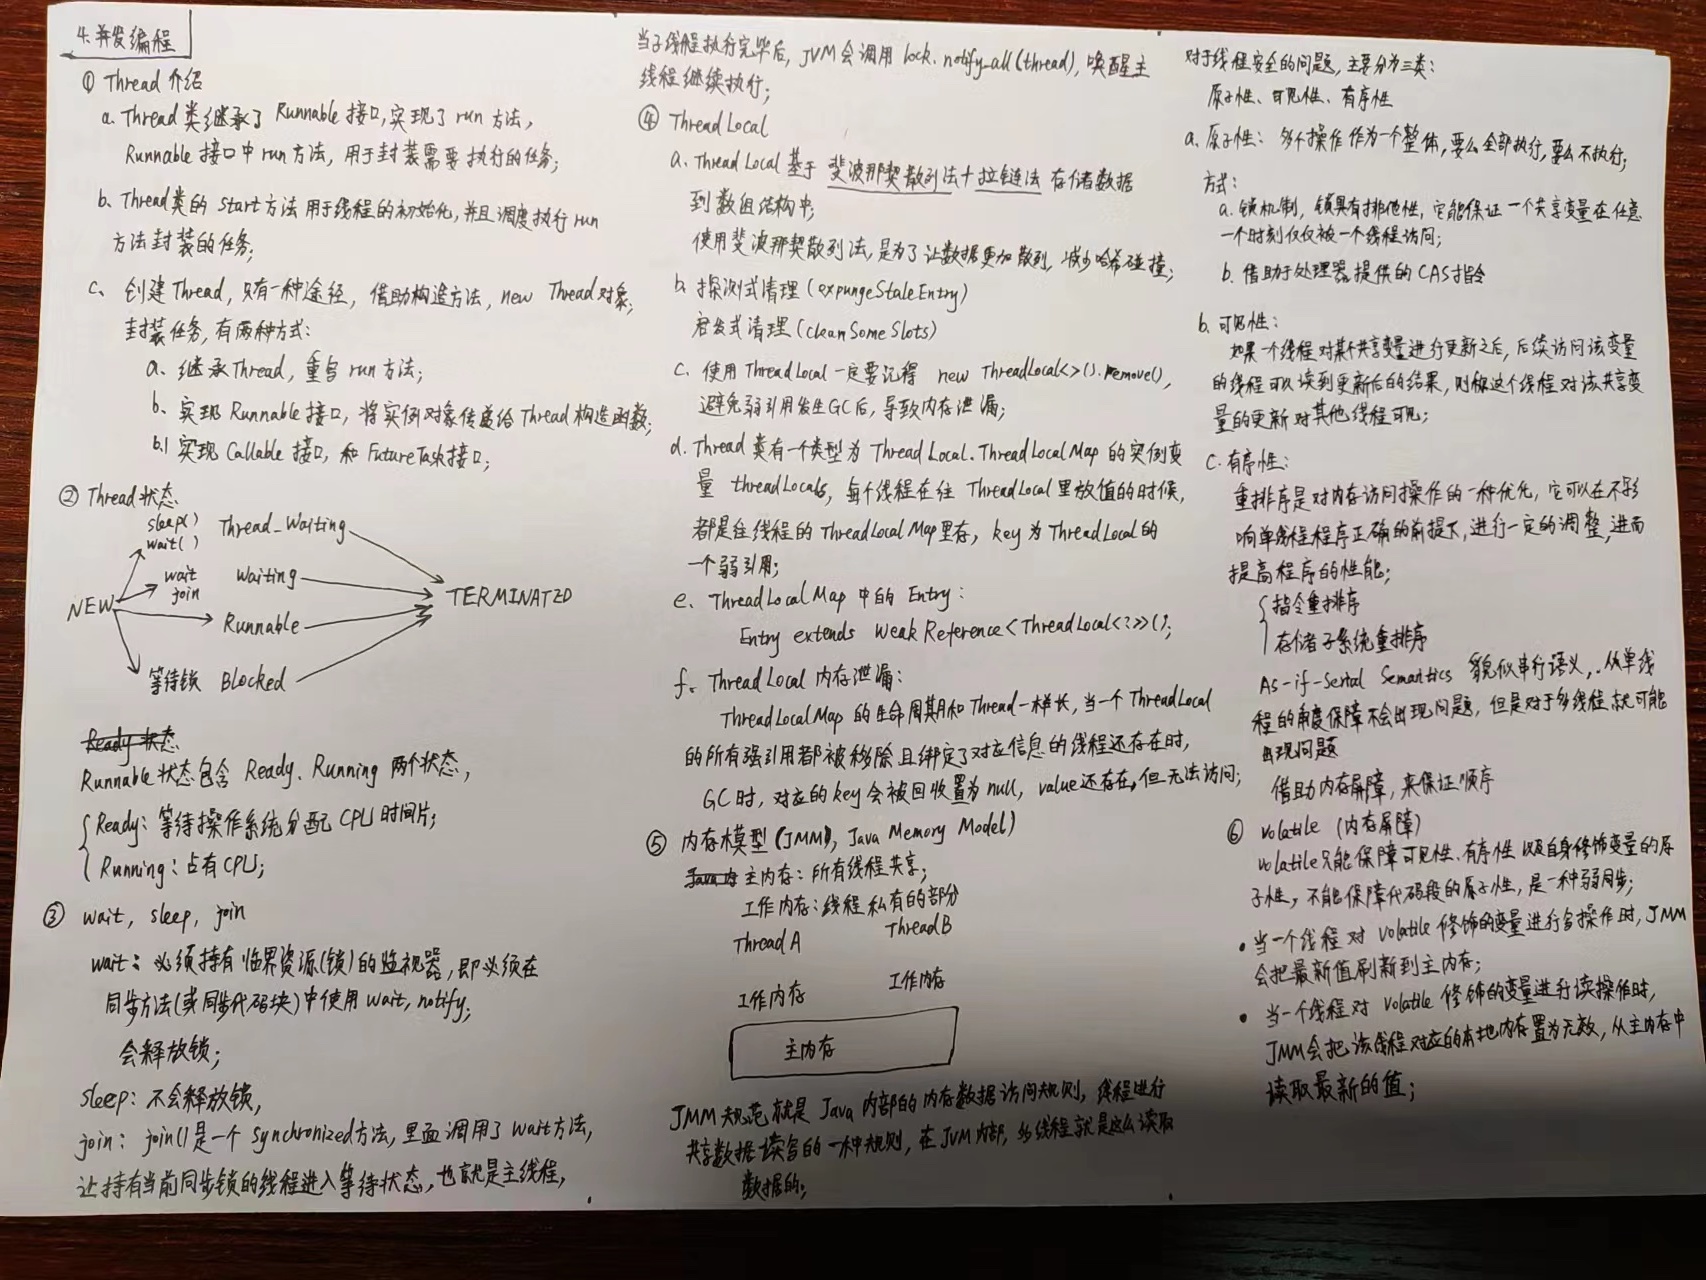 4.并发编程
① Thread 介绍
a. Thread 类继承了 Runnable 接口,实现了 run 方法,
Runnable 接口中 run 方法, 用于封装需要执行的任务;
b. Thread类的 start方法 用于线程的初始化,并且调度执行 run
方法封装的任务;
c. 创建Thread, 只有一种途径, 借助构造方法, new Thread对象;
封装任务, 有两种方式:
a. 继承Thread, 重写 run方法;
b. 实现 Runnable 接口, 将实例对象传递给Thread构造函数;
b.1 实现 Callable 接口, 和 FutureTask接口;
② Thread 状态
sleep() Thread_Waiting
wait()
wait waiting
join
NEW TERMINATED
Runnable
等待锁 Blocked
Ready 状态
Runnable 状态包含 Ready、Running 两个状态,
Ready: 等待操作系统分配 CPU 时间片;
Running: 占有CPU;
③ wait, sleep, join
wait: 必须持有临界资源(锁)的监视器, 即必须在
同步方法(或同步代码块)中使用 wait, notify;
会释放锁;
sleep: 不会释放锁,
join: join()是一个 Synchronized方法, 里面调用了 wait方法,
让持有当前同步锁的线程进入等待状态, 也就是主线程,
当子线程执行完毕后, JVM会调用 lock.notify_all(thread), 唤醒主
线程继续执行;
④ ThreadLocal
a. ThreadLocal 基于 斐波那契散列法+拉链法 存储数据
到数组结构中;
使用斐波那契散列法, 是为了让数据更加散列, 减少哈希碰撞;
b. 探测式清理 (expungeStaleEntry)
启发式清理 (cleanSomeSlots)
c. 使用 ThreadLocal 一定要记得 new ThreadLocal<>().remove(),
避免弱引用发生GC后, 导致内存泄漏;
d. Thread 类有一个类型为 ThreadLocal.ThreadLocalMap 的实例变
量 threadLocals, 每个线程在往 ThreadLocal里放值的时候,
都是往线程的 ThreadLocalMap里存, key 为 ThreadLocal的
一个弱引用;
e. ThreadLocalMap 中的 Entry:
Entry extends WeakReference<ThreadLocal<?>>();
f. ThreadLocal 内存泄漏:
ThreadLocalMap 的生命周期和 Thread一样长, 当一个 ThreadLocal
的所有强引用都被移除且绑定了对应信息的线程还存在时,
GC时, 对应的key会被回收置为null, value还存在, 但无法访问;
⑤ 内存模型 (JMM), Java Memory Model)
主内存: 所有线程共享;
工作内存: 线程私有的部分
ThreadA ThreadB
工作内存 工作内存
主内存
JMM 规范就是 Java 内部的内存数据访问规则, 线程进行
共享数据读写的一种规则, 在JVM内部, 多线程就是这么读取
数据的;
对于线程安全的问题, 主要分为三类:
原子性、可见性、有序性
a. 原子性: 多个操作作为一个整体, 要么全部执行, 要么不执行;
方式:
a. 锁机制, 锁具有排他性, 它能保证一个共享变量在任意
一个时刻仅仅被一个线程访问;
b. 借助于处理器提供的CAS指令
b. 可见性:
如果一个线程对某个共享变量进行更新之后, 后续访问该变量
的线程可以读到更新后的结果, 则称这个线程对该共享变
量的更新对其他线程可见;
c. 有序性:
重排序是对内存访问操作的一种优化, 它可以在不影
响单线程程序正确的前提下, 进行一定的调整, 进而
提高程序的性能;
指令重排序
存储子系统重排序
As-if-Serial Semantics 貌似串行语义, 从单线
程的角度保障不会出现问题, 但是对于多线程就可能
出现问题
借助内存屏障, 来保证顺序
⑥ volatile (内存屏障)
volatile只能保障可见性、有序性以及自身修饰变量的原
子性, 不能保障代码段的原子性, 是一种弱同步;
• 当一个线程对 volatile 修饰的变量进行写操作时, JMM
会把最新值刷新到主内存;
• 当一个线程对 volatile 修饰的变量进行读操作时,
JMM会把该线程对应的本地内存置为无效, 从主内存中
读取最新的值;